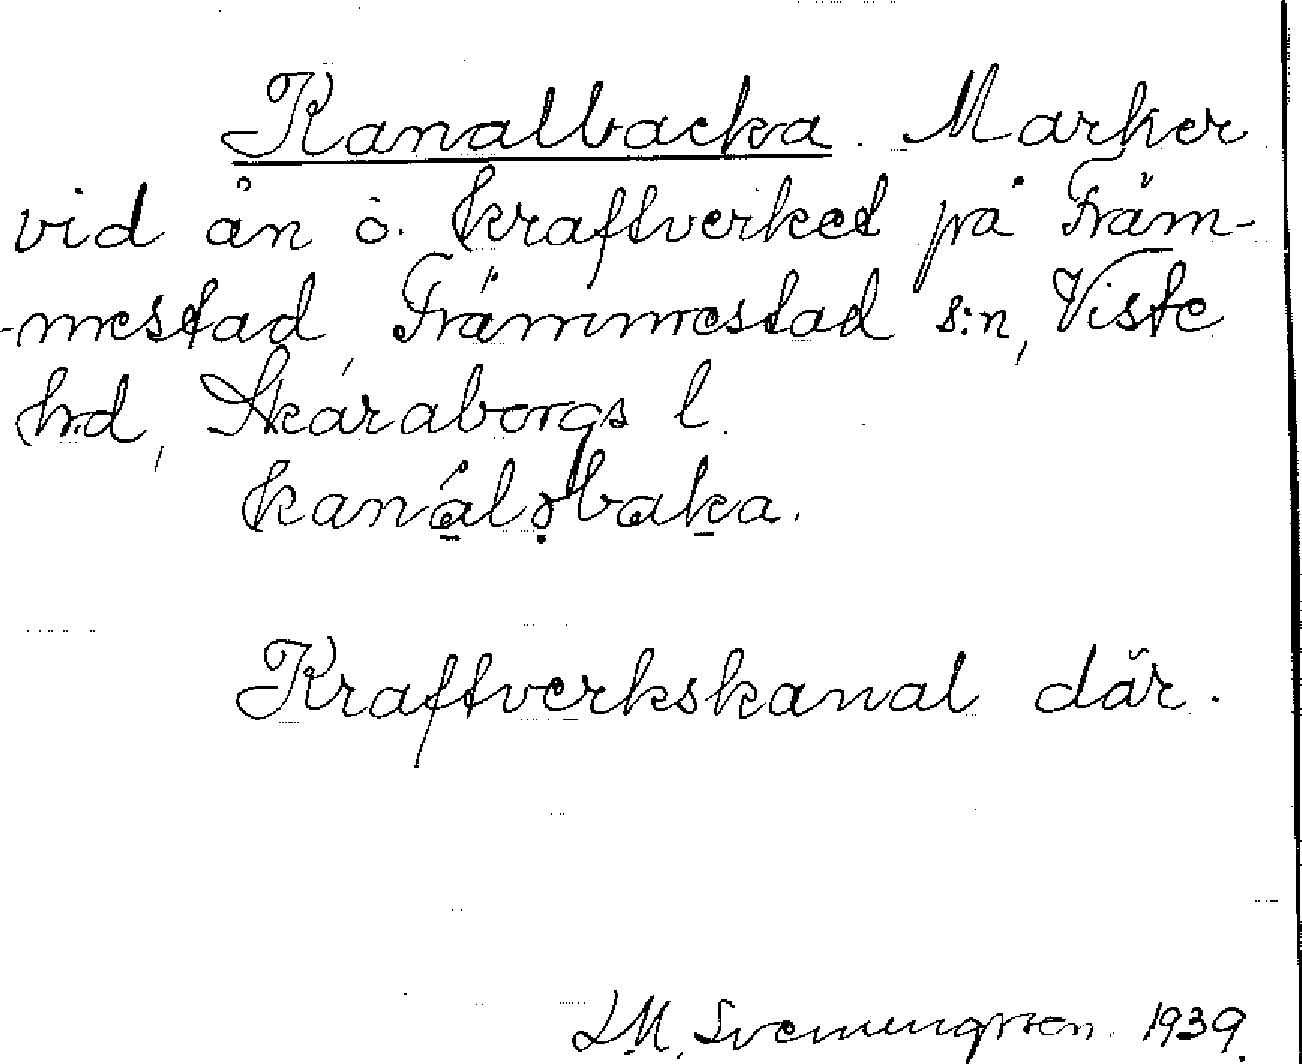 Kanalbacka. Marker
vid ån ö. kraftverket på Främ-
-mestad, Främmestad s:n, Viste
hd, Skaraborgs l.
kanálsbaka.
Kraftverkskanal där.
1939.